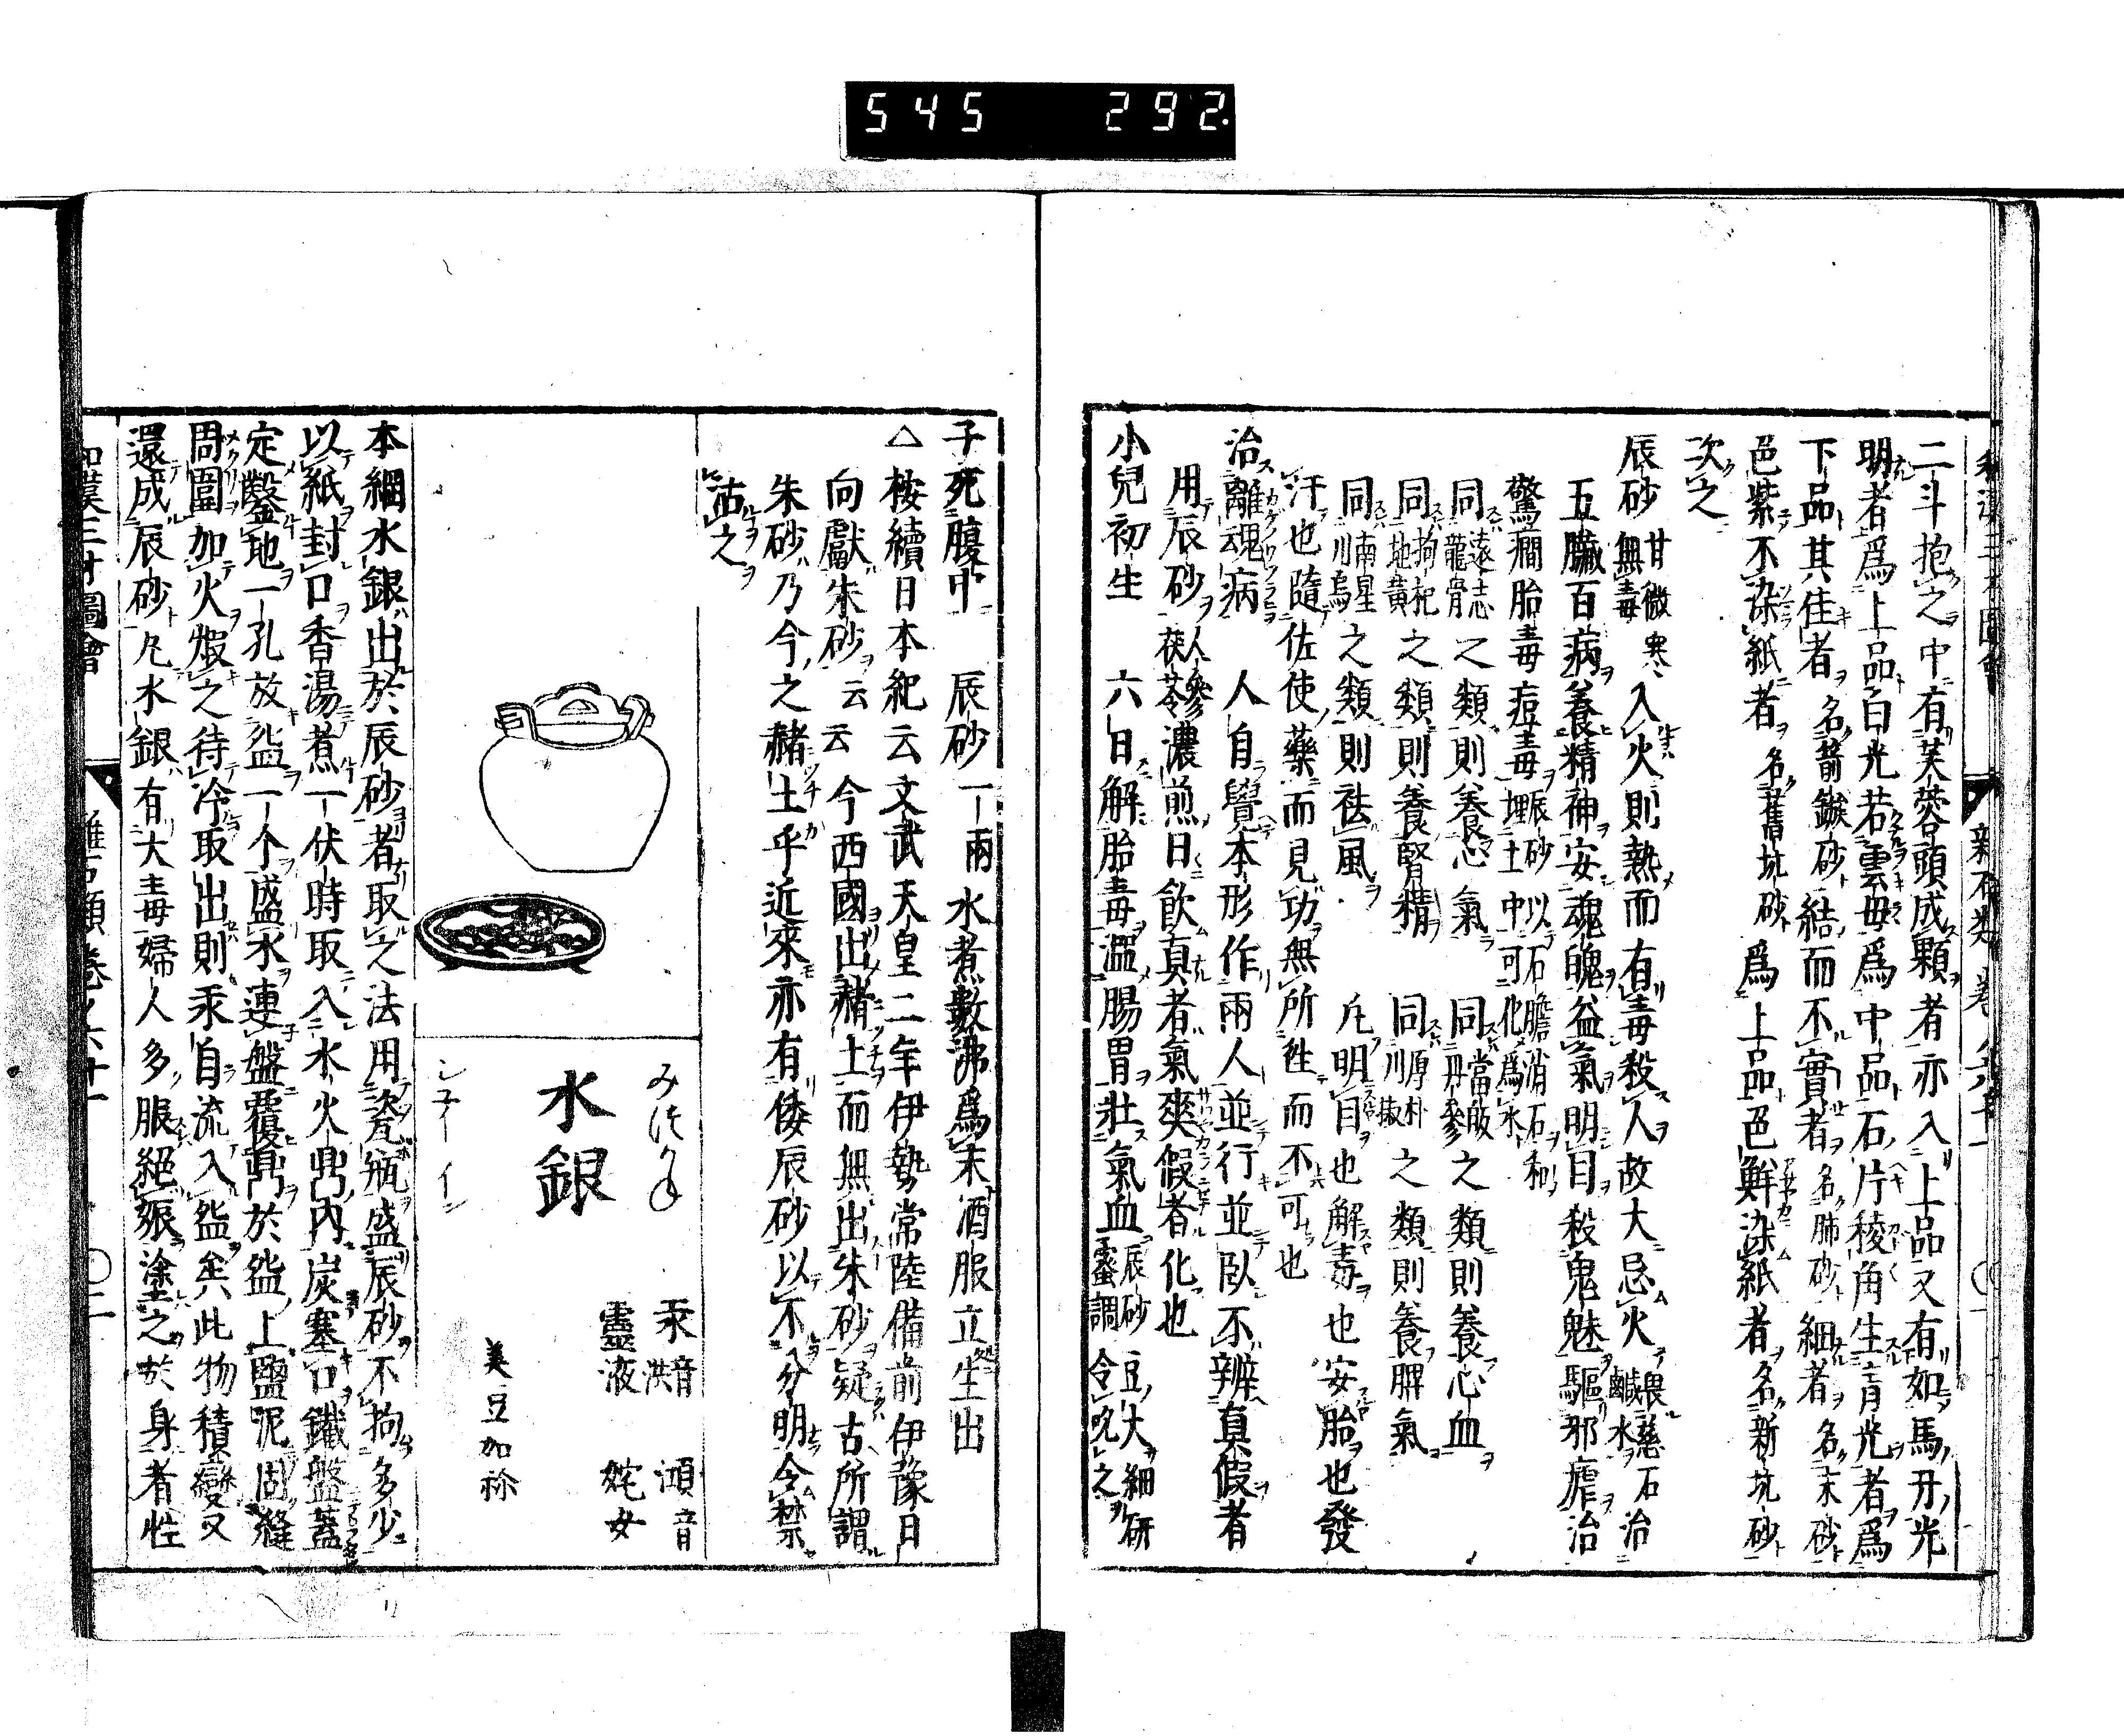 545 292.
二斗抱之中有芙蓉頭成顆者亦入上品又有如馬牙光
明者爲上品白光若雲母爲中品石片稜角生青光者爲
下品其佳者名箭鏃砂結而不實者名肺砂細者名末砂
色紫不染紙者名舊坑砂爲上品色鮮染紙者名新坑砂
次之
辰砂 甘微寒無毒 入火則熱而有毒殺人故大忌火 畏慈石鹹水 治
五臟百病養精神安魂魄益氣明目殺鬼魅驅邪瘧治
驚癇胎毒痘毒 埋辰砂土中可化爲水 以石膽消石和
同遠志龍骨之類則養心氣 同當皈丹參之類則養心血
同拘杞地黄之類則養腎精 同厚朴川椒之類則養脾氣
同南星川烏之類則祛風 凡明目也解毒也安胎也發
汗也隨佐使藥而見功無所徃而不可也
治離魂病 人自覺本形作兩人並行並臥不辨真假者
用辰砂人參茯苓濃煎日飮真者氣爽假者化也
小兒初生 六日解胎毒温腸胃壯氣血 辰砂豆大細研蜜調令吮之
子死腹中 辰砂一兩水煮數沸爲末酒服立生出
△按續日本紀云文武天皇二年伊勢常陸備前伊豫日
向獻朱砂云云今西國出赭土而無出朱砂疑古所謂
朱砂乃今之赭土乎近來亦有倭辰砂以不分明令禁
沽之
水銀
みづかね
シユイ イン
汞 音洪 澒 音
靈液 姹女
美豆加祢
本綱水銀出於辰砂者取之法用瓷瓶盛辰砂不拘多少
以紙封口香湯煮一伏時取入水火鼎内炭塞口鐵盤蓋
定鑿地一孔放盌一个盛水連盤覆鼎於盌上鹽泥固縫
周圍加火煆之待冷取出則汞自流入盌矣此物積變又
還成辰砂凡水銀有大毒婦人多服絕娠塗之於身者性
和漢三才圖會 雜石類 卷之六十一 〇二